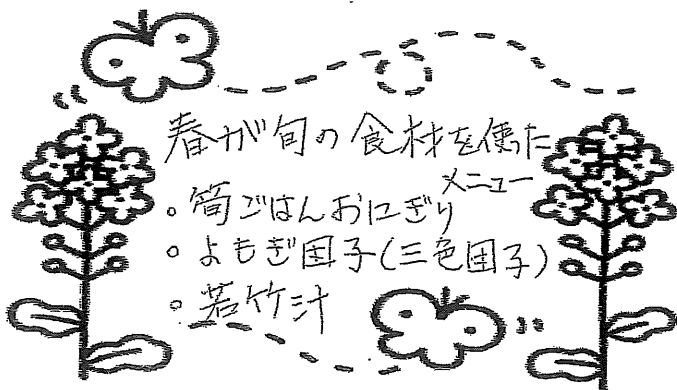 春が旬の食材を使った
メニュー
。筍ごはんおにぎり
。よもぎ団子(三色団子)
。若竹汁